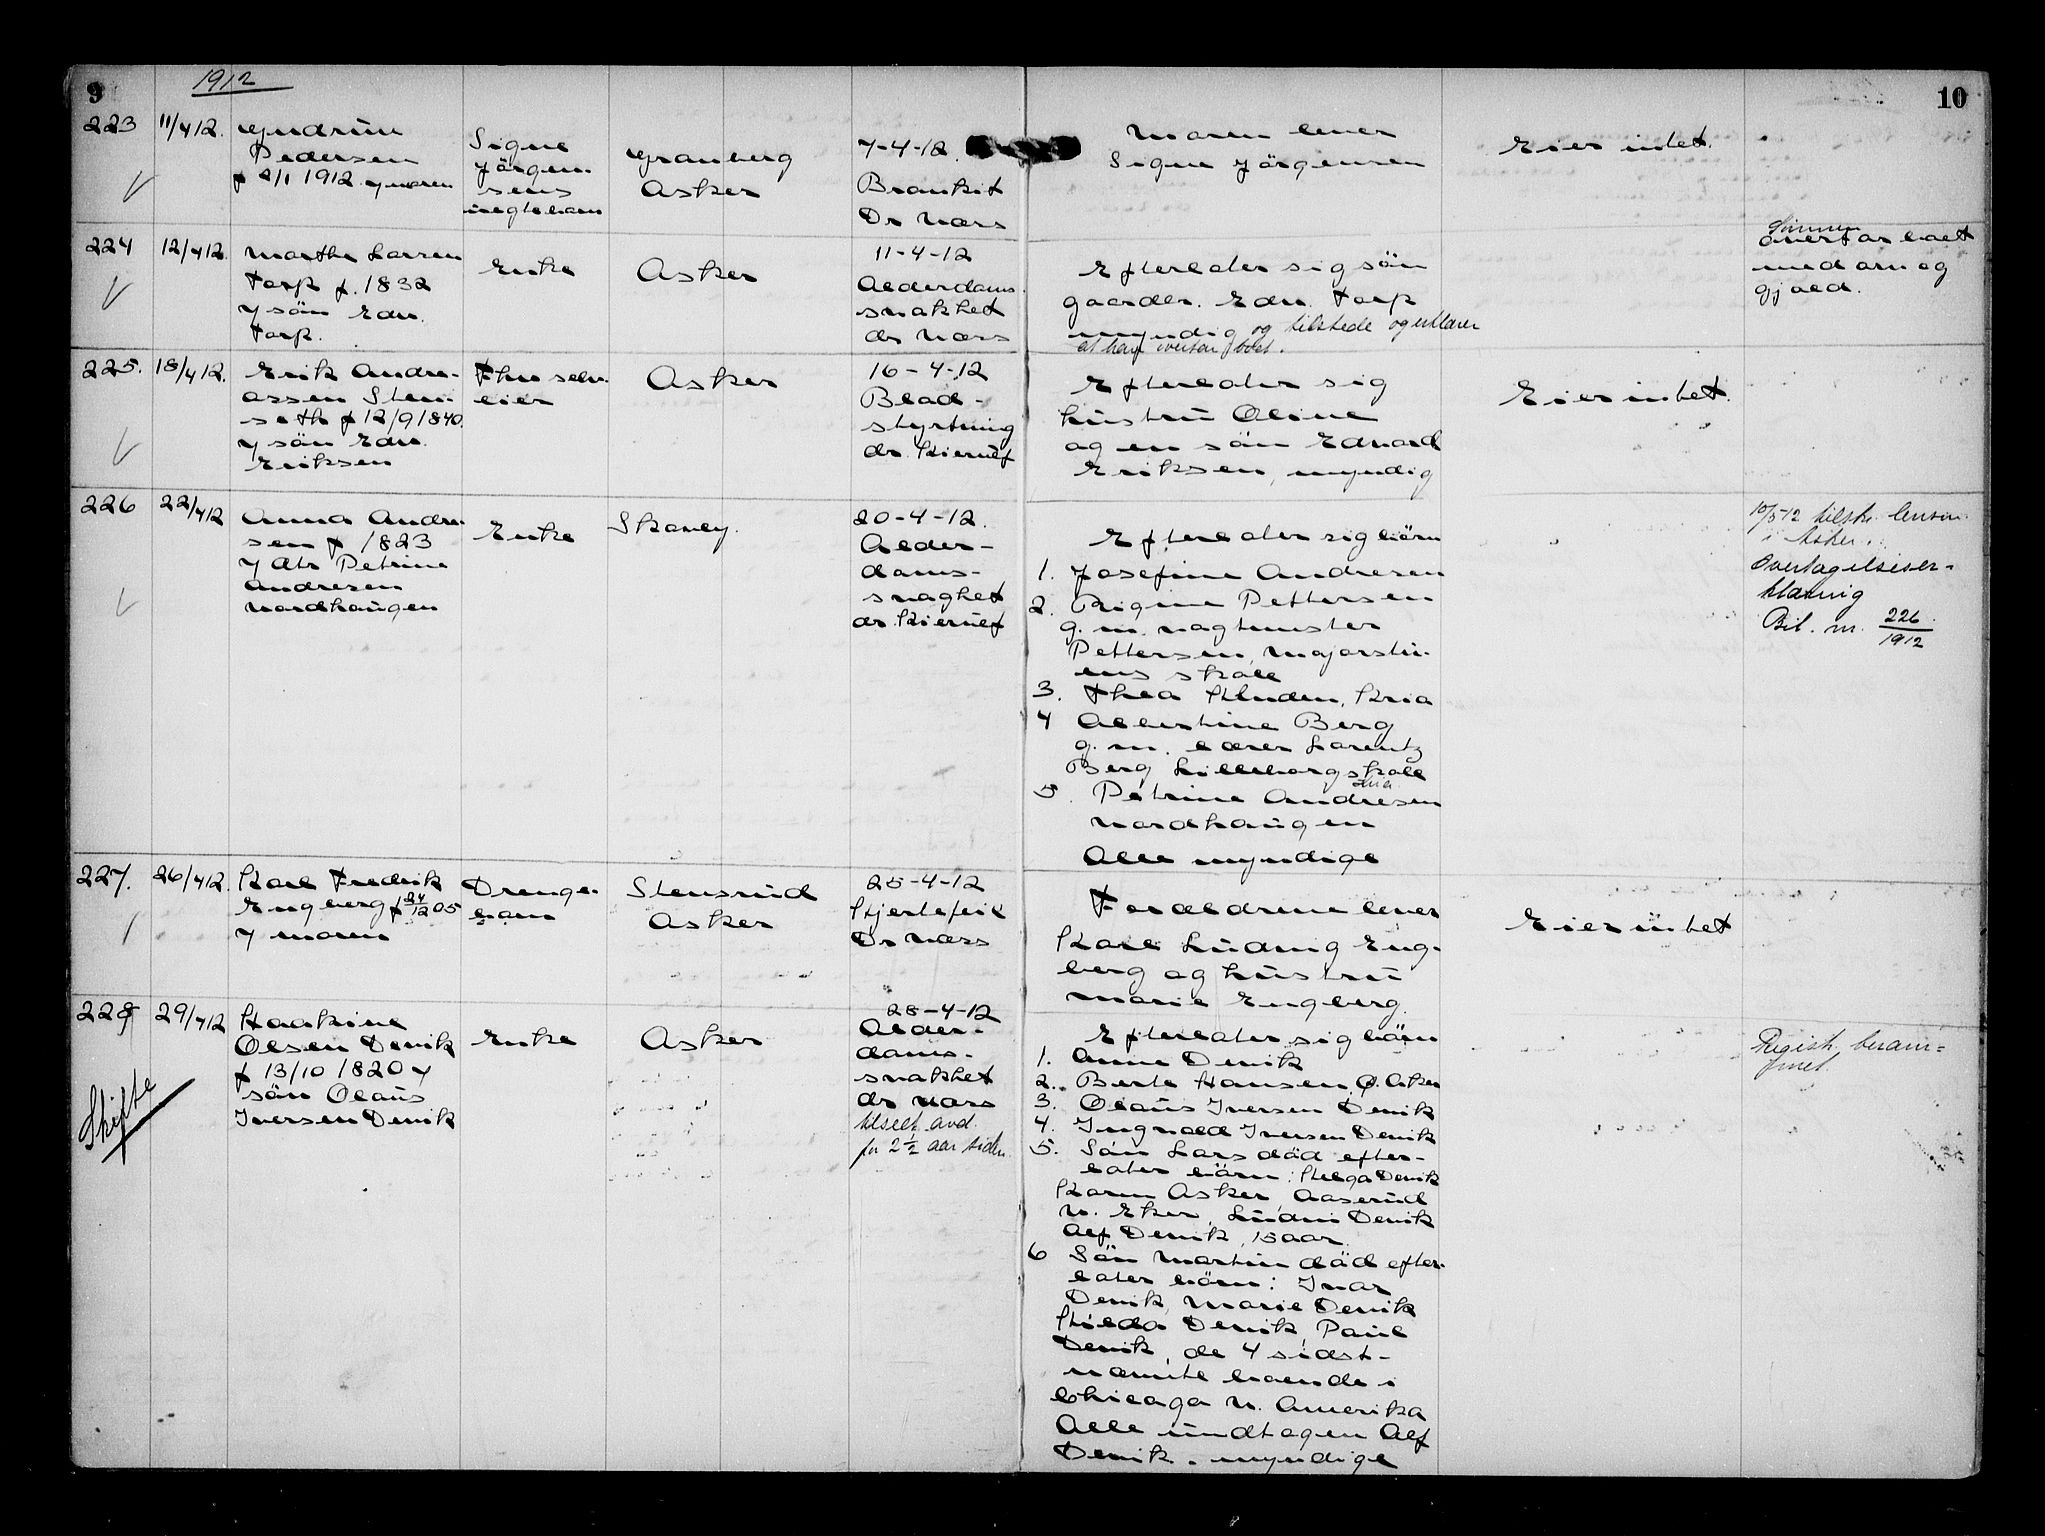 9
1912
10
223
11/4 12.
Gudrun
Pedersen
f 2/1 1912. v moren
Signe
Jörgen-
sens
uegtebarn
Granberg
Asker
7-4-12.
Bronkit
Dr Næss
Moren lever
Signe Jörgensen
Eier intet.
224
12/4 12.
Marthe Larsen
Torp f. 1832
v sön Edv.
Torp.
Enke
Asker
11-4-12
Alderdoms
svakhet
dr Næss
Efterlater sig sön
gaardbr. Edv. Torp
myndig og tilstede og erklærer
at han overtar boet.
Sönnen
overtar boet
med arv og
gjæld.
225.
18/4 12.
Erik Andre-
assen Sten-
seth f 12/9 1840.
v sön Edv.
Eriksen
Fhv selv-
eier
Asker
16-4-12
Blod-
styrtning
dr. Kierulf
Efterlater sig
hustru Oline
og en sön Edvard
Eriksen, myndig
Eier intet.
226
22/4 12
Anna Andre-
sen f 1823
v dtr Petrine
Andresen
Nordhaugen
Enke
Skovey.
20-4-12.
Alder-
doms-
svaghet
dr. Kierulf
Efterlater sig börn
1. Josefine Andresen
2. Rigine Pettersen
g. m. vagtmester
Pettersen, Majorstu-
ens skole
3. Thea Knuden, Kria
4 Albertine Berg
g. m. lærer Lorentz
Berg Lilleborg skole
Kria.
5. Petrine Andresen
Nordhaugen
Alle myndige
10/5 12 tilskr. lensm.
i Asker.
Overtagelseser-
klæring
Bil. nr. 226/1912
227.
26/4 12.
Karl Fredrik
Engberg f 24/12 05
v moren
Drenge-
barn
Stensrud
Asker
25-4-12
Hjertefeil
Dr Næss
Forældrene lever
Karl Ludvig Eng-
berg og hustru
Marie Engberg.
Eier intet
228
29/4 12
Haakine
Olsen Denik
f 13/10 1820 v
sön Olaus
Iversen Denik
Skifte
Enke
Asker
28-4-12
Alder-
doms-
svakhet
dr Næss
tilseet avd.
for 2 1/2 aar siden
Efterlater sig börn
1. Anne Denik
2. Berte Hansen Ø. Asker
3. Olaus Iversen Denik
4. Ingvald Iversen Denik
5. Sön Lars död efter-
later börn: Helga Denik
Karen Asker, Aaserud
N. Eker, Ludvi Denik
Alf Denik, 15 aar.
6 Sön Martin död efter-
later börn: Ivar
Denik, Marie Denik
Hilda Denik, Paul
Denik, de 4 sidst-
nævnte boende i
Chicago N. Amerika
Alle undtagen Alf
Denik. myndige
Regist. beram-
met.